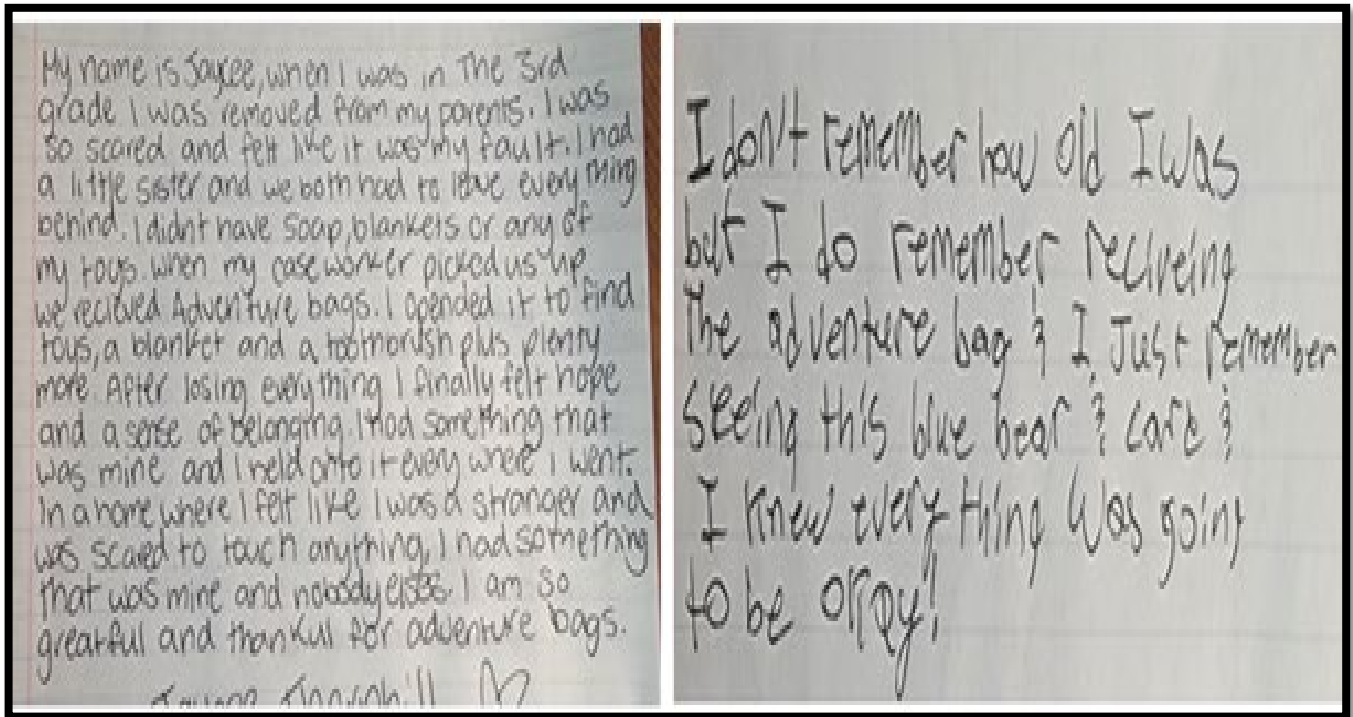 My name is Jaycee, when I was in The 3rd
grade I was removed from my parents. I was
so scared and felt like it was my fault. I had
a little sister and we both had to leave every thing
behind. I didnt have soap, blankets or any of
my toys. when my caseworker picked us up
we recieved Adventure bags. I opended it to find
toys, a blanket and a toothbrush plus plenty
more. After losing everything I finally felt hope
and a sense of belonging. I had something that
was mine and I held onto it every where i went.
In a home where I felt like I was a stranger and
was scared to touch anything, I had something
that was mine and nobody elses. I am so
greatful and thankull for adventure bags.
I don't remember how old I was
but I do remember recireing
The adventure bag & I Just remember
seeing this blue bear & card &
I knew every thing was going
to be okay!